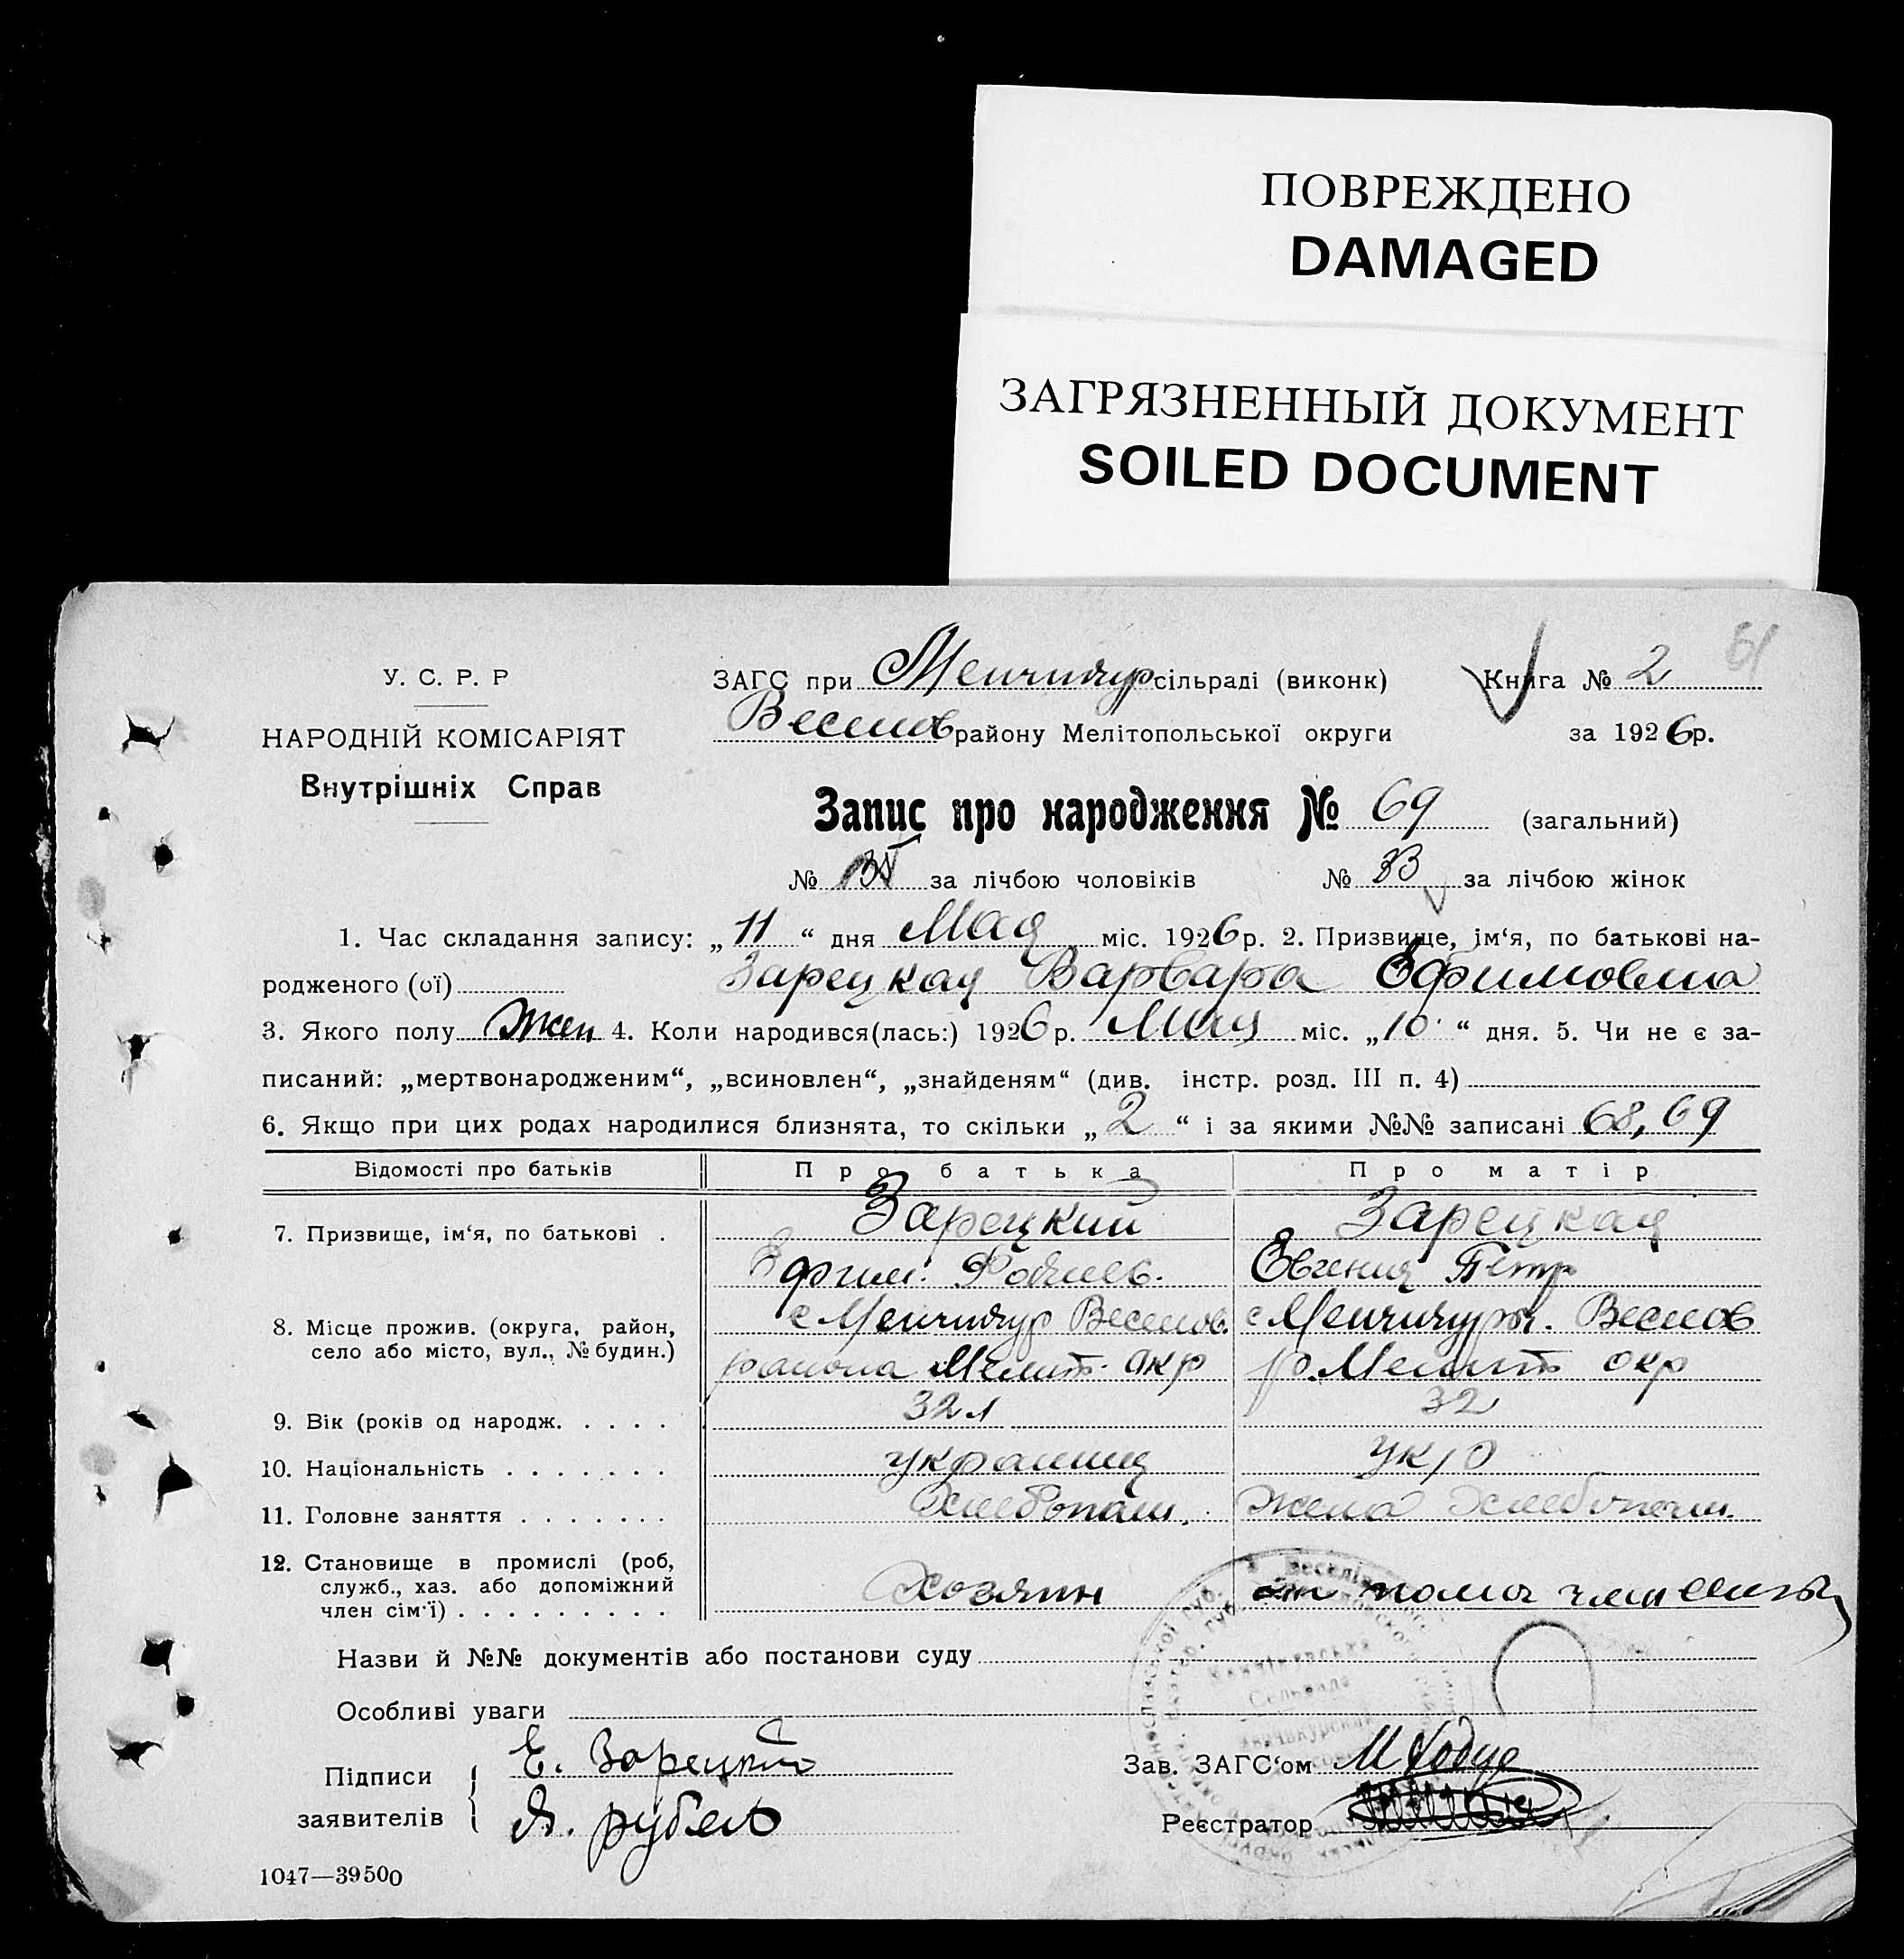 ПОВРЕЖДЕНО
DAMAGED
ЗАГРЯЗНЕННЫЙ ДОКУМЕНТ
SOILED DOCUMENT
61
У. С. Р. Р
НАРОДНІЙ КОМІСАРІЯТ
Внутрішніх Справ
ЗАГС при Менчикур сільраді (виконк)
Веселов району Мелітопольської округи
Книга № 2
за 1926 р.
Запис про народження № 69 (загальний)
№ за лічбою чоловіків № 33 за лічбою жінок
1. Час складання запису: „11“ дня Мая міс. 1926 р. 2. Призвище, ім‘я, по батькові на-
родженого (ої) Зарецкая Варвара Ефимовна
3. Якого полу Жен 4. Коли народився(лась:) 1926 р. Мая міс. „10“ дня. 5. Чи не є за-
писаний: „мертвонародженим“, „всиновлен“, „знайденям“ (див. інстр. розд. III п. 4)
6. Якщо при цих родах народилися близнята, то скільки „2“ і за якими №№ записані 68, 69
Відомості про батьків Про батька Про матір
7. Призвище, ім‘я, по батькові . Зарецкий Зарецкая
Ефим. Евгения Петр
8. Місце прожив. (округа, район, с Менчикур Веселов. с Менчикуры. Веселов
село або місто, вул., № будин.) района Мелит. окр р. Мелит окр
9. Вік (років од народж. . . . . 32 л 32
10. Національність . . . . . . . украинец укр
11. Головне заняття . . . . . . . Хлебопаш. Жена Хлебопаш.
12. Становище в промислі (роб,
служб., хаз. або допоміжний
член сім‘ї) . . . . . . . . . Хозяин помог член семьи
Назви й №№ документів або постанови суду
Особливі уваги
Підписи
заявителів
Е. Зарецкий
Я. рубель
Зав. ЗАГС‘ом
Реєстратор
1047—39500